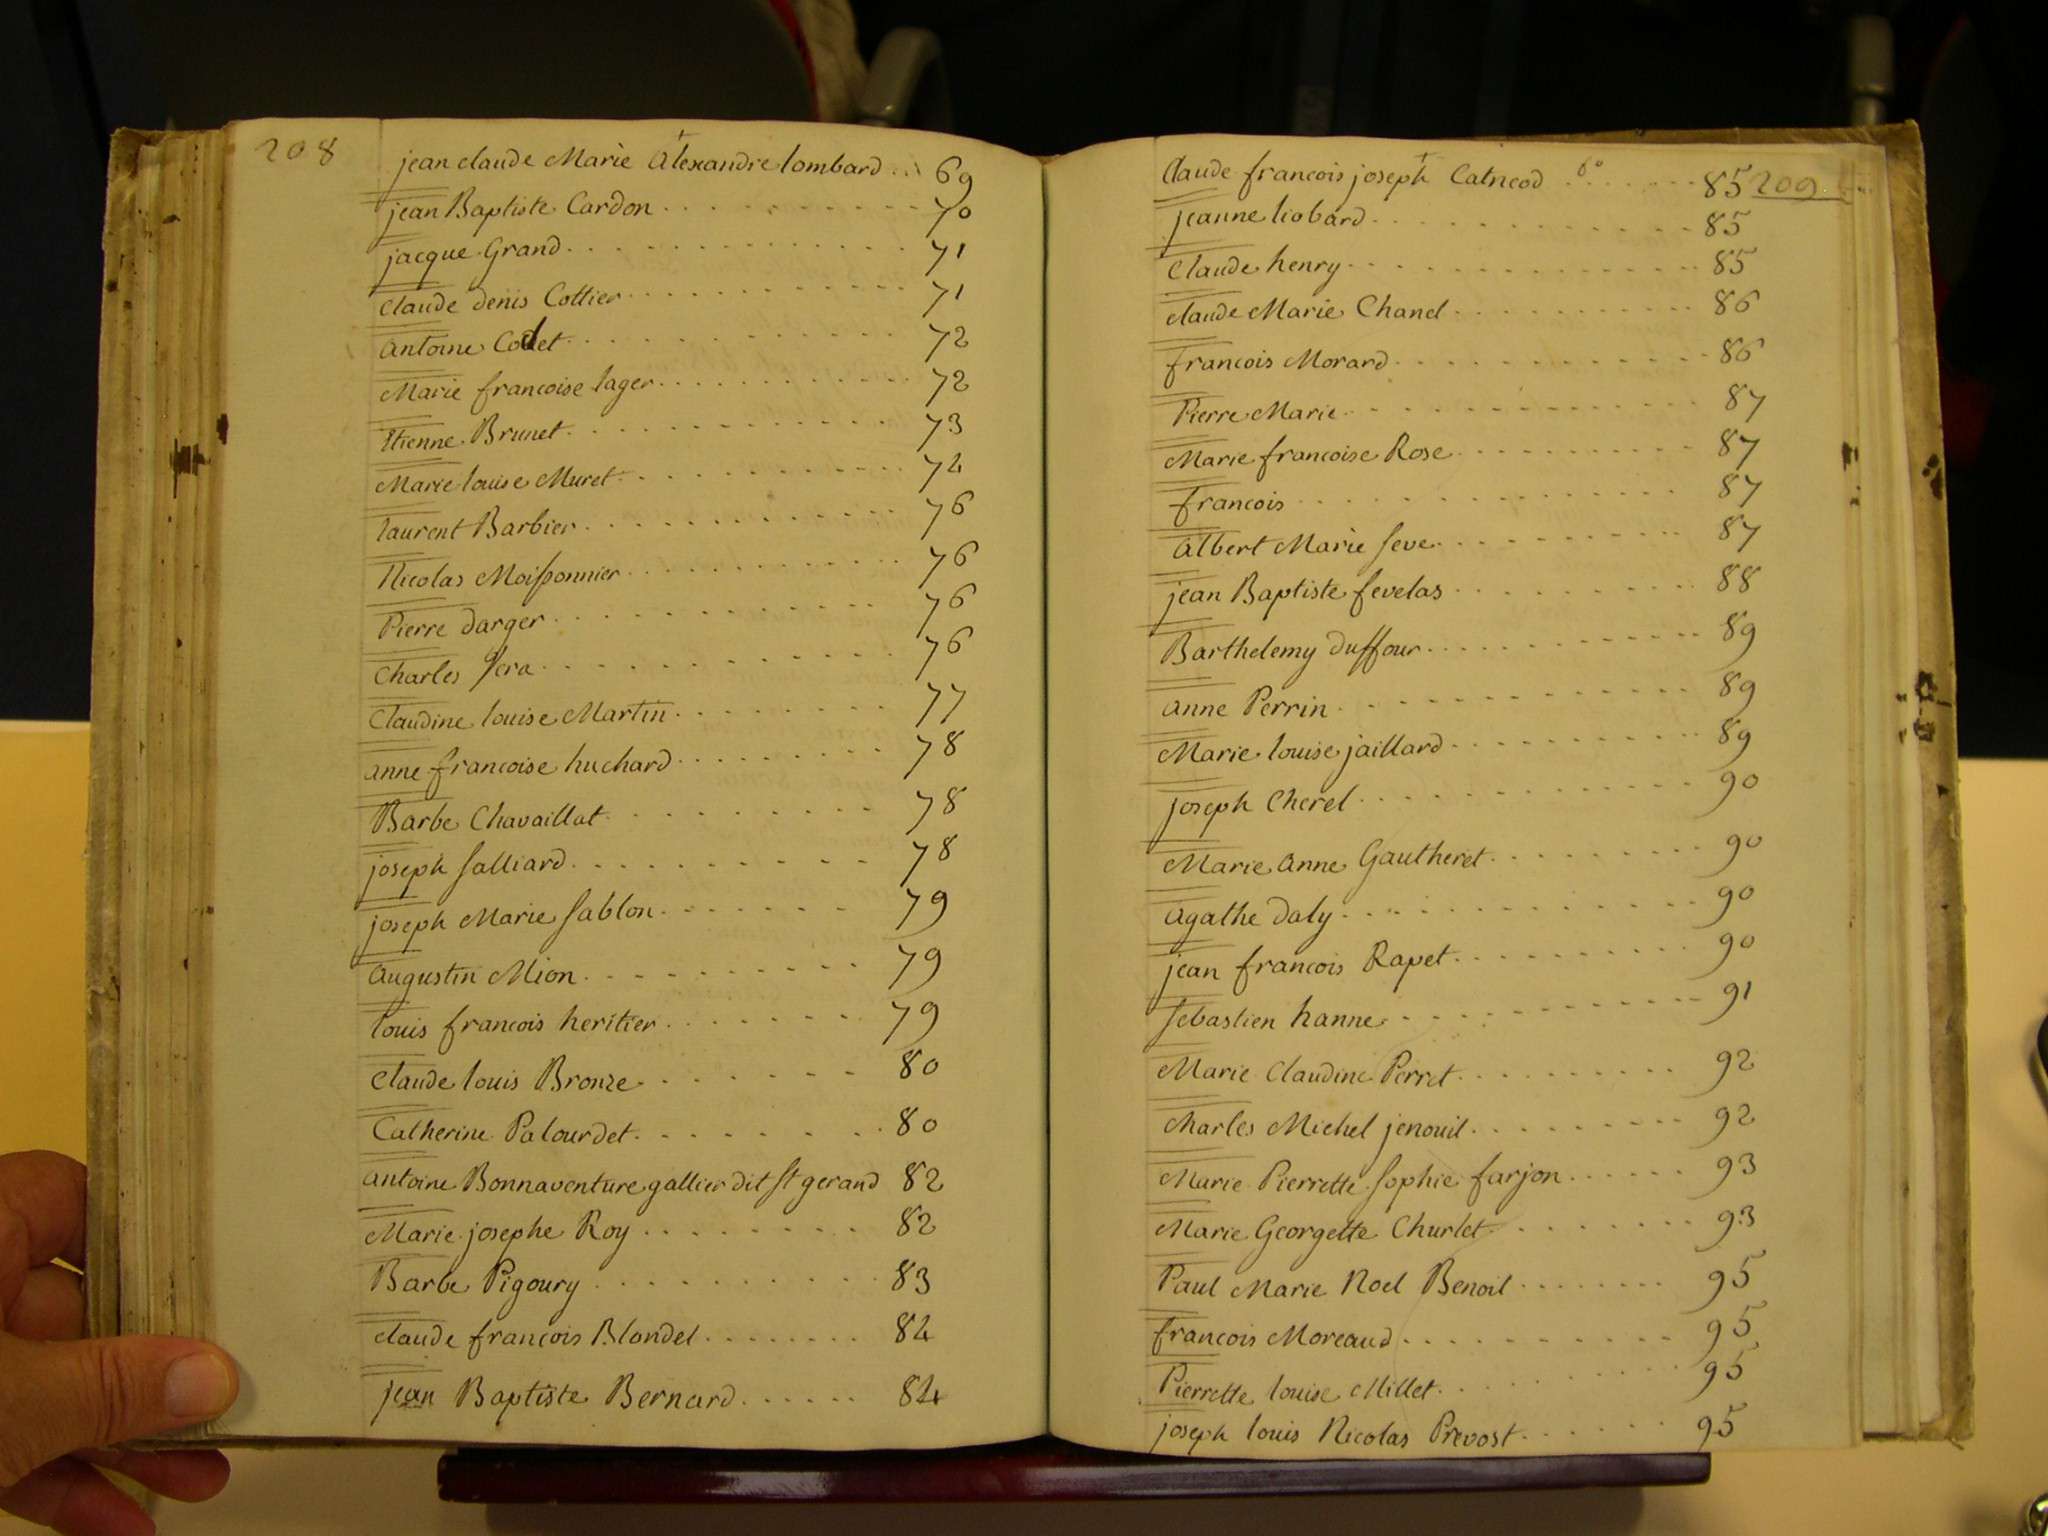 208
jean claude Marie Alexandre lombard ... 69
jean Baptiste Cardon . . . . . . . . . . 70
jacque Grand . . . . . . . . . . . . . 71
Claude denis Cottier . . . . . . . . . . . 71
antoine Codet . . . . . . . . . . . . 72
Marie francoise lager . . . . . . . . . . 72
Etienne Brunet . . . . . . . . . . . . 73
Marie louise Muret . . . . . . . . . . 74
laurent Barbier . . . . . . . . . . . . 76
Nicolas Moissonnier . . . . . . . . . . . 76
Pierre darger . . . . . . . . . . . . 76
Charles fera . . . . . . . . . . . . . 76
Claudine louise Martin . . . . . . . . 77
anne francoise huchard . . . . . . . 78
Barbe Chavaillat . . . . . . . . 78
joseph Salliard . . . . . . . . . . 78
joseph Marie Sablon . . . . . . . 79
augustin Mion . . . . . . . . . . 79
louis francois heritier . . . . . . . . 79
Claude louis Bronze . . . . . . . 80
Catherine Palourdet . . . . . . . . 80
antoine Bonnaventure gallier dit St gerand 82
Marie josephe Roy . . . . . . . . 82
Barbe Pigoury . . . . . . . . . . . 83
claude francois Blondel . . . . . . . 84
jean Baptiste Bernard . . . . . . 84
209
Claude francois joseph Catneod 6° . . . . . . 85
jeanne liobard . . . . . . . . . . . . 85
Claude henry . . . . . . . . . . . . . 85
claude Marie Chanel . . . . . . . . . . 86
francois Morard . . . . . . . . . . . . 86
Pierre Marie . . . . . . . . . . . . . 87
Marie francoise Rose . . . . . . . . . . 87
francois . . . . . . . . . . . . . . 87
albert Marie Seve . . . . . . . . . . 87
jean Baptiste fevelas . . . . . . . . . 88
Barthelemy duffour . . . . . . . . . . 89
anne Perrin . . . . . . . . . . . . . 89
Marie louise jaillard . . . . . . . . . 89
joseph Cherel . . . . . . . . . . . . 90
Marie anne Gautheret . . . . . . . . . 90
agathe daly . . . . . . . . . . . . . 90
jean francois Rapet . . . . . . . . . 90
Sebastien hanne . . . . . . . . . . . 91
Marie Claudine Perret . . . . . . . . . 92
charles Michel jenouil . . . . . . . . . 92
Marie Pierrette Sophie farjon . . . . . . 93
Marie Georgette Churlet . . . . . . . . 93
Paul Marie Noel Benoil . . . . . . . . 95
francois Moreaud . . . . . . . . . . . 95
Pierrette louise Millet . . . . . . . . 95
joseph louis Nicolas Prevost . . . . . 95